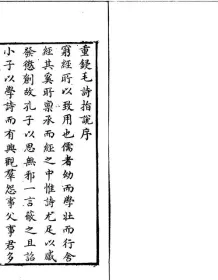 重鋟毛詩指說序
窮經所以致用也儒者幼而學壯而行舍
經其奚所稟承而經之中惟詩尤足以感
發懲創故孔子以思無邪一言蔽之且詔
小子以學詩而有興觀羣怨事父事君多